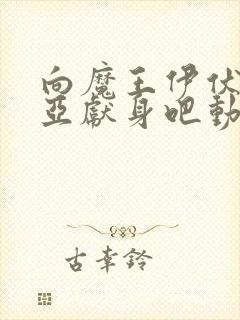 向魔王伊伏
亚献身吧動
古幸鈴